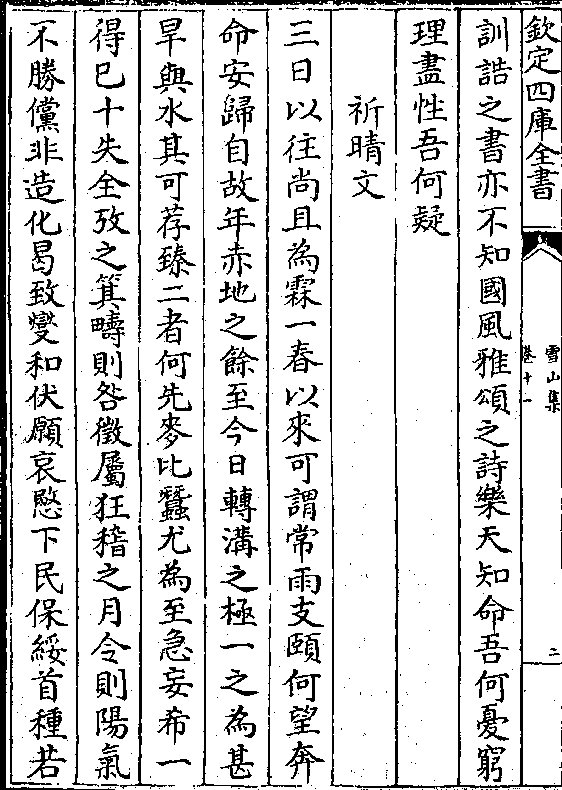 欽定四庫全書
雪山集
卷十一
二
訓誥之書亦不知國風雅頌之詩樂天知命吾何憂窮
理盡性吾何疑
祈晴文
三日以往尚且為霖一春以來可謂常雨支頤何望奔
命安歸自故年赤地之餘至今日轉溝之極一之為甚
旱與水其可荐臻二者何先麥比蠶尤為至急妄希一
得已十失全攷之箕疇則咎徵屬狂稽之月令則陽氣
不勝儻非造化曷致燮和伏願哀愍下民保綏首種若